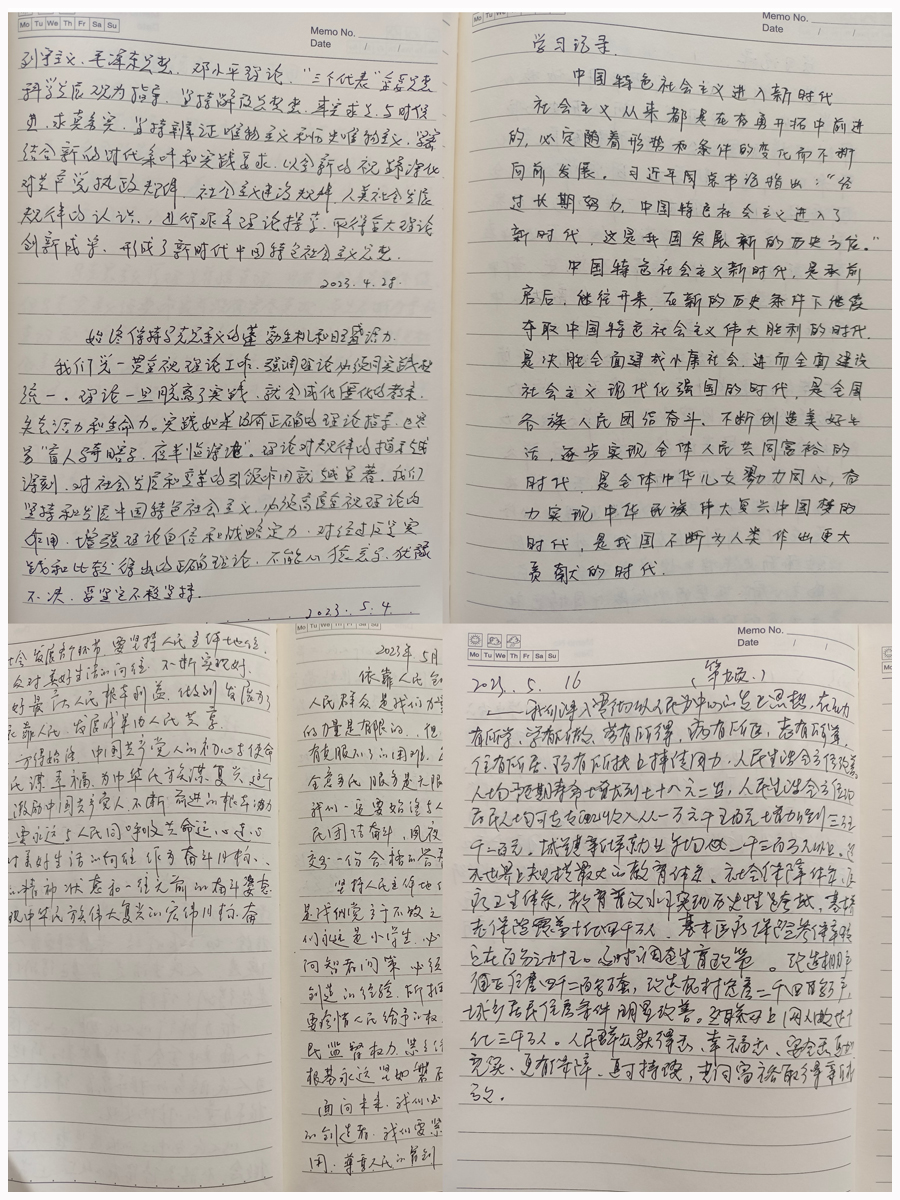 Mo Tu We Th Fr Sa Su
Memo No.
Date / /
列宁主义、毛泽东思想、邓小平理论、“三个代表”重要思想
科学发展观为指导，坚持解放思想、实事求是、与时俱
进、求真务实，坚持辩证唯物主义和历史唯物主义，紧密
结合新的时代条件和实践要求，以全新的视野深化
对共产党执政规律、社会主义建设规律、人类社会发展
规律的认识，进行艰辛理论探索，取得重大理论
创新成果，形成了新时代中国特色社会主义思想。
2023.4.28.
始终保持马克思主义的蓬勃生机和旺盛活力
我们党一贯重视理论工作，强调理论必须同实践相
统一。理论一旦脱离了实践，就会成僵化的教条，
失去活力和生命力。实践如果没有正确的理论指导，也容
易“盲人骑瞎马，夜半临深池”。理论对规律的揭示越
深刻，对社会发展和变革的引领作用就越显著。我们
坚持和发展中国特色社会主义，必须高度重视理论的
作用，增强理论自信和战略定力，对经过反复实
践和比较得出的正确理论，不能心猿意马、犹豫
不决，要坚定不移坚持。
2023.5.4.
Mo Tu We Th Fr Sa Su
Memo No.
Date / /
学习记录
中国特色社会主义进入新时代
社会主义从来都是在奋勇开拓中前进
的，必定随着形势和条件的变化而不断
向前发展。习近平同志书记指出：“经
过长期努力，中国特色社会主义进入了
新时代，这是我国发展新的历史方位。”
中国特色社会主义新时代，是承前
启后、继往开来、在新的历史条件下继续
夺取中国特色社会主义伟大胜利的时代，
是决胜全面建成小康社会、进而全面建设
社会主义现代化强国的时代，是全国
各族人民团结奋斗、不断创造美好生
活、逐步实现全体人民共同富裕的
时代，是全体中华儿女勠力同心、奋
力实现中华民族伟大复兴中国梦的
时代，是我国不断为人类作出更大
贡献的时代。
会发展新，要坚持人民主体地位，
众对美好生活的向往，不断实现好、
好最广大人民根本利益，做到发展为了
靠人民、发展成果由人民共享
方得始终。中国共产党人的初心与使命
民谋幸福，为中华民族谋复兴，这个
激励中国共产党人不断前进的根本动力
要永远与人民同呼吸共命运、心连心
对美好生活的向往作为奋斗目标，
的精神状态和一往无前的奋斗姿态
现中华民族伟大复兴的宏伟目标奋
Mo Tu We Th Fr Sa Su
2023年5月
依靠人民
人民群众是我们力量
的力量是有限的，但
有克服不了的困难，
全意为民服务是无限
我们一定要始终与人
民团结奋斗，夙夜
交一份合格的答
坚持人民主体地位
是我们党立于不败之
们永远是小学生，必
问智于民问策，必须
创造的经验，所拥
要珍惜人民给予的权
民监督权力，紧
根基永远坚如磐石
面向未来，我们必
的创造者，我们要紧
围，尊重人民的首创
Mo Tu We Th Fr Sa Su
Memo No.
Date / /
2023.5.16
一、我们深入贯彻以人民为中心的发展思想，在幼
有所育、学有所教、劳有所得、病有所医、老有所养、
住有所居、弱有所扶上持续用力，人民生活全方位改善。
人均预期寿命增长到七十八点二岁，
居民人均可支配收入从一万六千五百元增加到三万五
千一百元。城镇新增就业年均一千三百万人以上。建
成世界上规模最大的教育体系、社会保障体系、医
疗卫生体系，教育普及水平实现历史性跨越，基本养
老保险覆盖十亿四千万人，基本医疗保险参保率稳
定在百分之九十五。及时调整生育政策。改造棚户
区住房四千二百多万套，改造农村危房二千四百多万户，
城乡居民住房条件明显改善。互联网上网人数达十
亿三千万人。人民群众获得感、幸福感、安全感更加
充实、更有保障、更可持续，共同富裕取得新成
效。